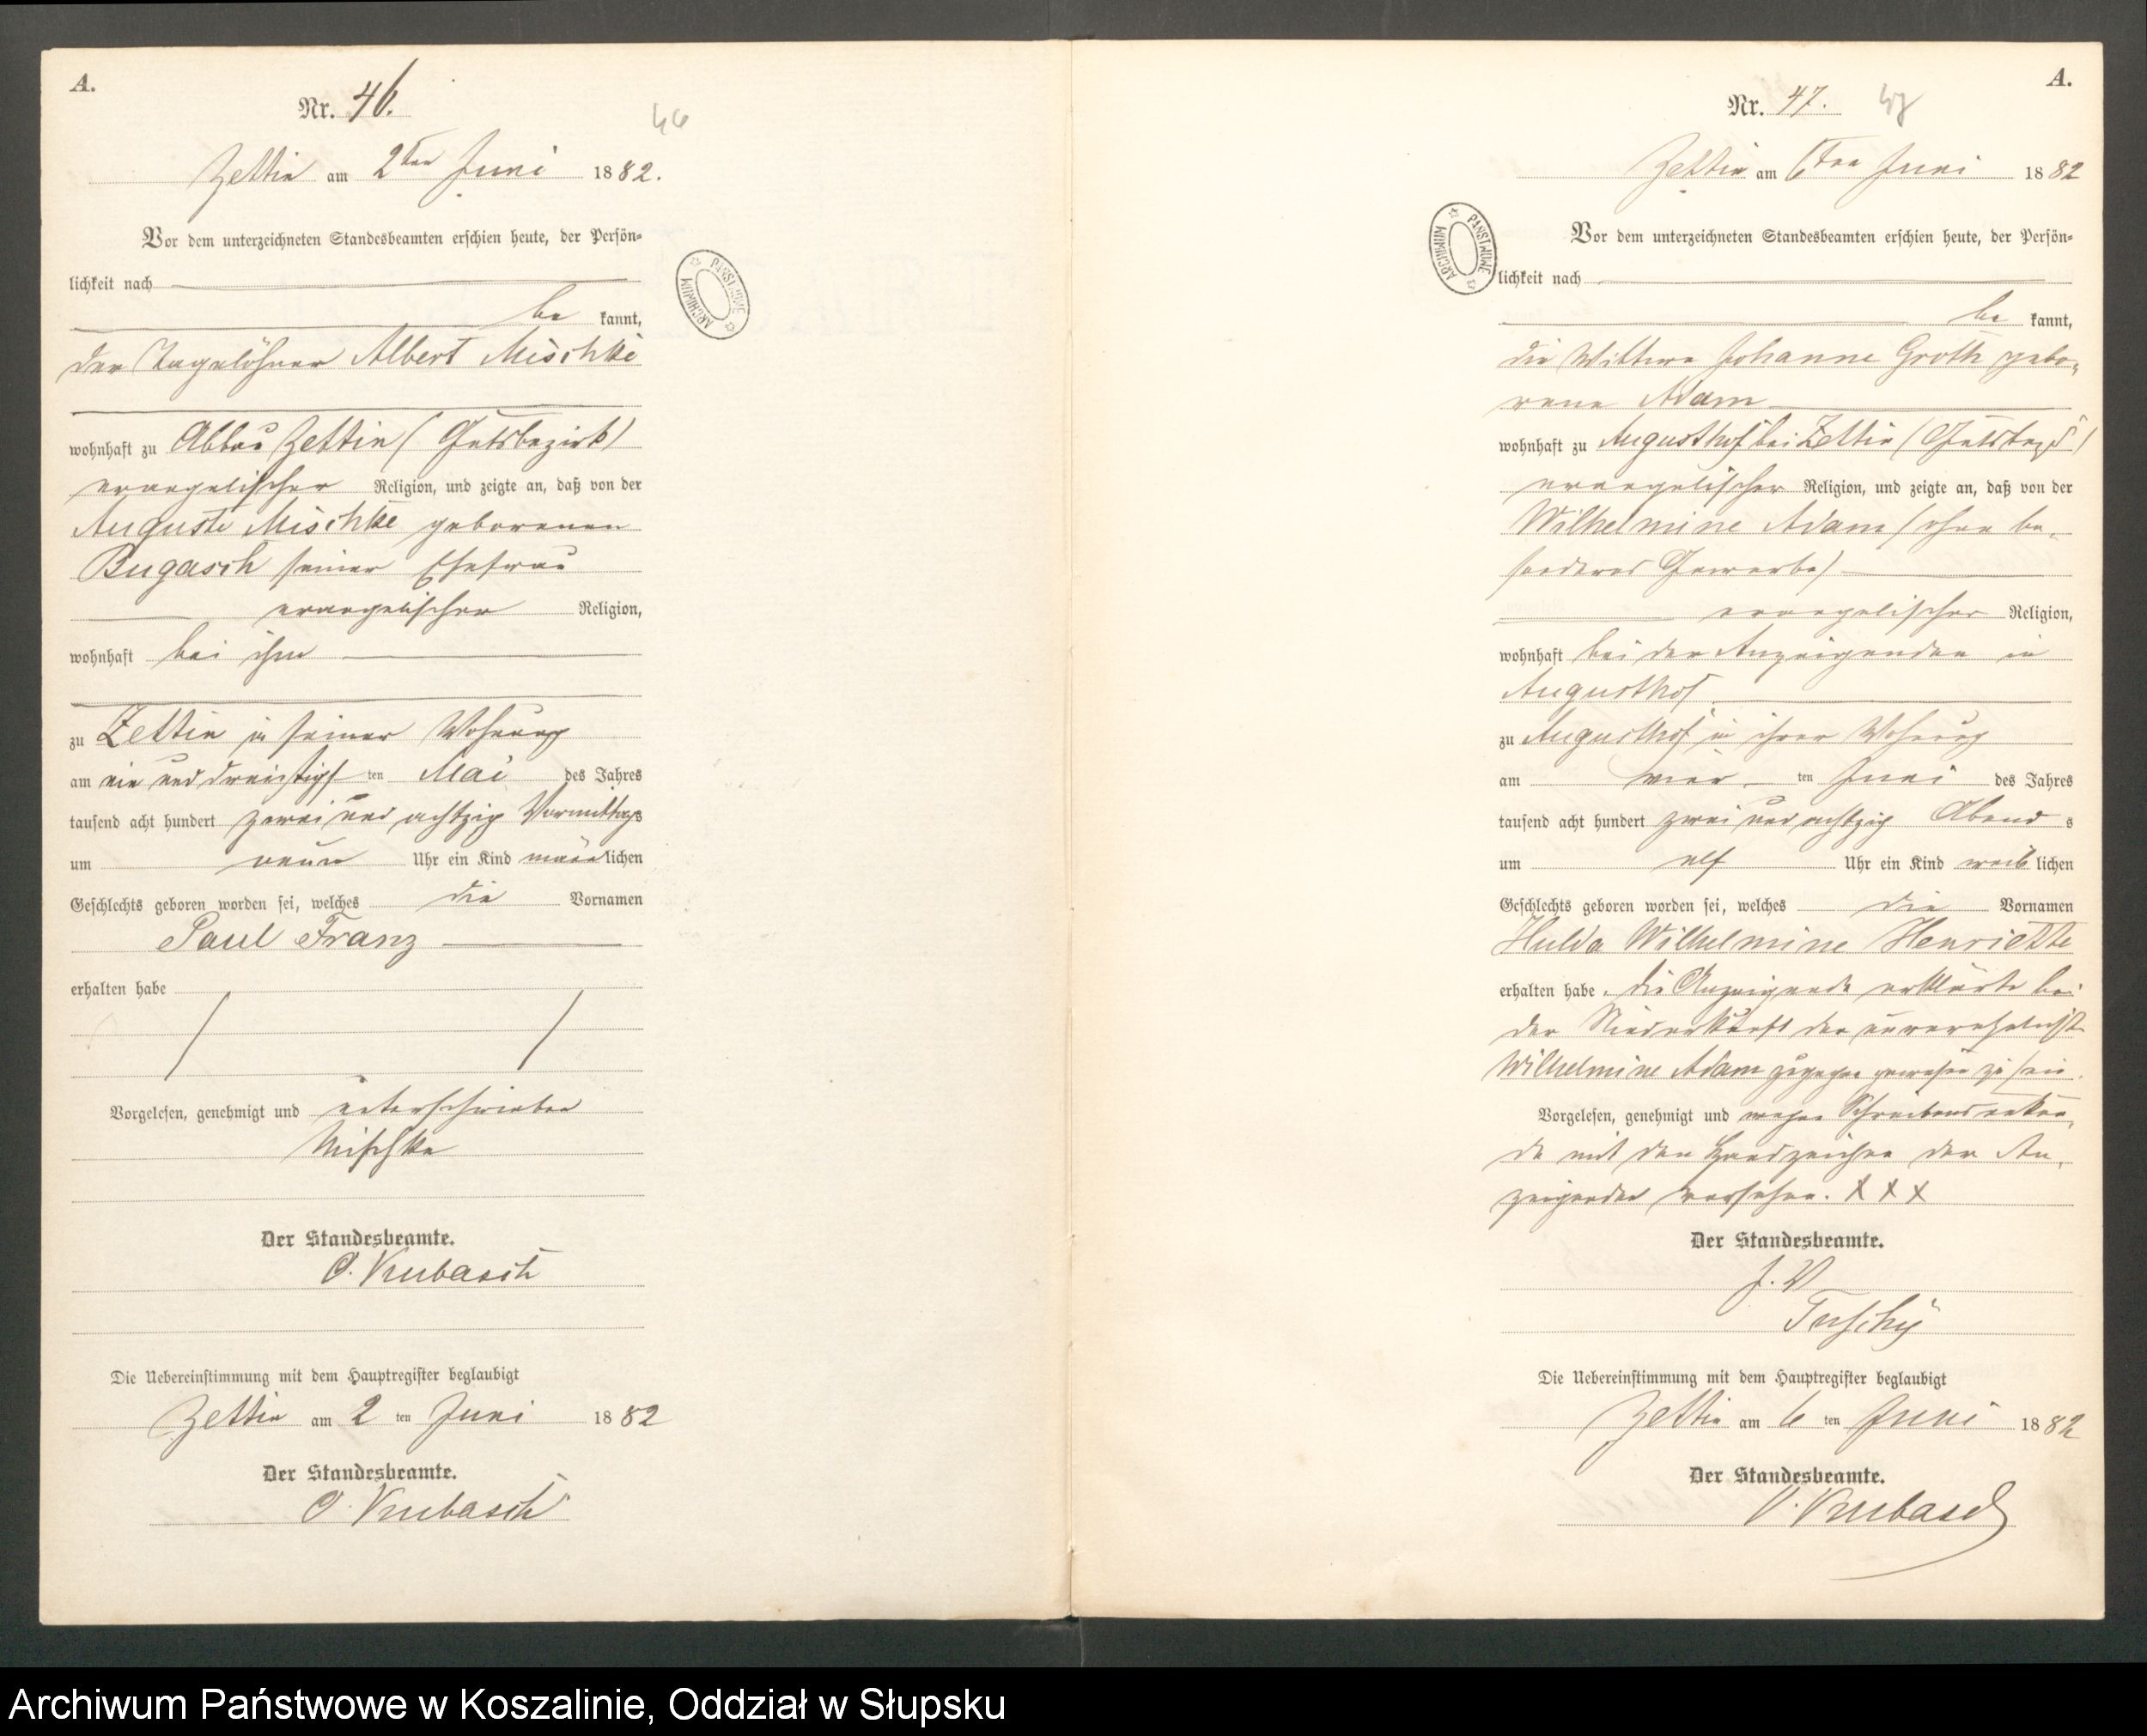 A.
Nr. 46.
46
Zettin am 2ten Juni 1882.
Vor dem unterzeichneten Standesbeamten erschien heute, der Persön-
lichkeit nach
be kannt,
der Tagelöhner Albert Mischke
wohnhaft zu Abbau Zettin (Gutsbezirk)
evangelischer Religion, und zeigte an, daß von der
Auguste Mischke geborenen
Bugasch seiner Ehefrau
evangelischer Religion,
wohnhaft bei ihm
zu Zettin in seiner Wohnung
am ein und dreißigsten Mai des Jahres
tausend acht hundert zwei und achtzig Vormittags
um neun Uhr ein Kind männlichen
Geschlechts geboren worden sei, welches die Vornamen
Paul Franz
erhalten habe
Vorgelesen, genehmigt und unterschrieben
Mischke
Der Standesbeamte.
O. Kubasch
Die Uebereinstimmung mit dem Hauptregister beglaubigt
Zettin am 2 ten Juni 1882
Der Standesbeamte.
O. Kubasch
ARCHIWUM PAŃSTWOWE
A.
Nr. 47.
47
Zettin am 6ten Juni 1882
Vor dem unterzeichneten Standesbeamten erschien heute, der Persön-
lichkeit nach
be kannt,
die Wittwe Johanne Groth gebo-
rene Adam
wohnhaft zu Augusthof bei Zettin (Gutsbez.)
evangelischer Religion, und zeigte an, daß von der
Wilhelmine Adam (ohne be-
sonderes Gewerbe)
evangelischer Religion,
wohnhaft bei der Anzeigenden in
Augusthof
zu Augusthof in ihrer Wohnung
am vier ten Juni des Jahres
tausend acht hundert zwei und achtzig Abend s
um elf Uhr ein Kind weib lichen
Geschlechts geboren worden sei, welches die Vornamen
Hulda Wilhelmine Henriette
erhalten habe. Die Anzeigende erklärte bei
der Niederkunft der unverehelicht
Wilhelmine Adam zugegen gewesen zu sein.
Vorgelesen, genehmigt und wegen Schreibensunkun-
de mit den Handzeichen der An-
zeigenden versehen. X X X
Der Standesbeamte.
J. V
Die Uebereinstimmung mit dem Hauptregister beglaubigt
Zettin am 6 ten Juni 1882
Der Standesbeamte.
O. Kubasch
ARCHIWUM PAŃSTWOWE
Archiwum Państwowe w Koszalinie, Oddział w Słupsku